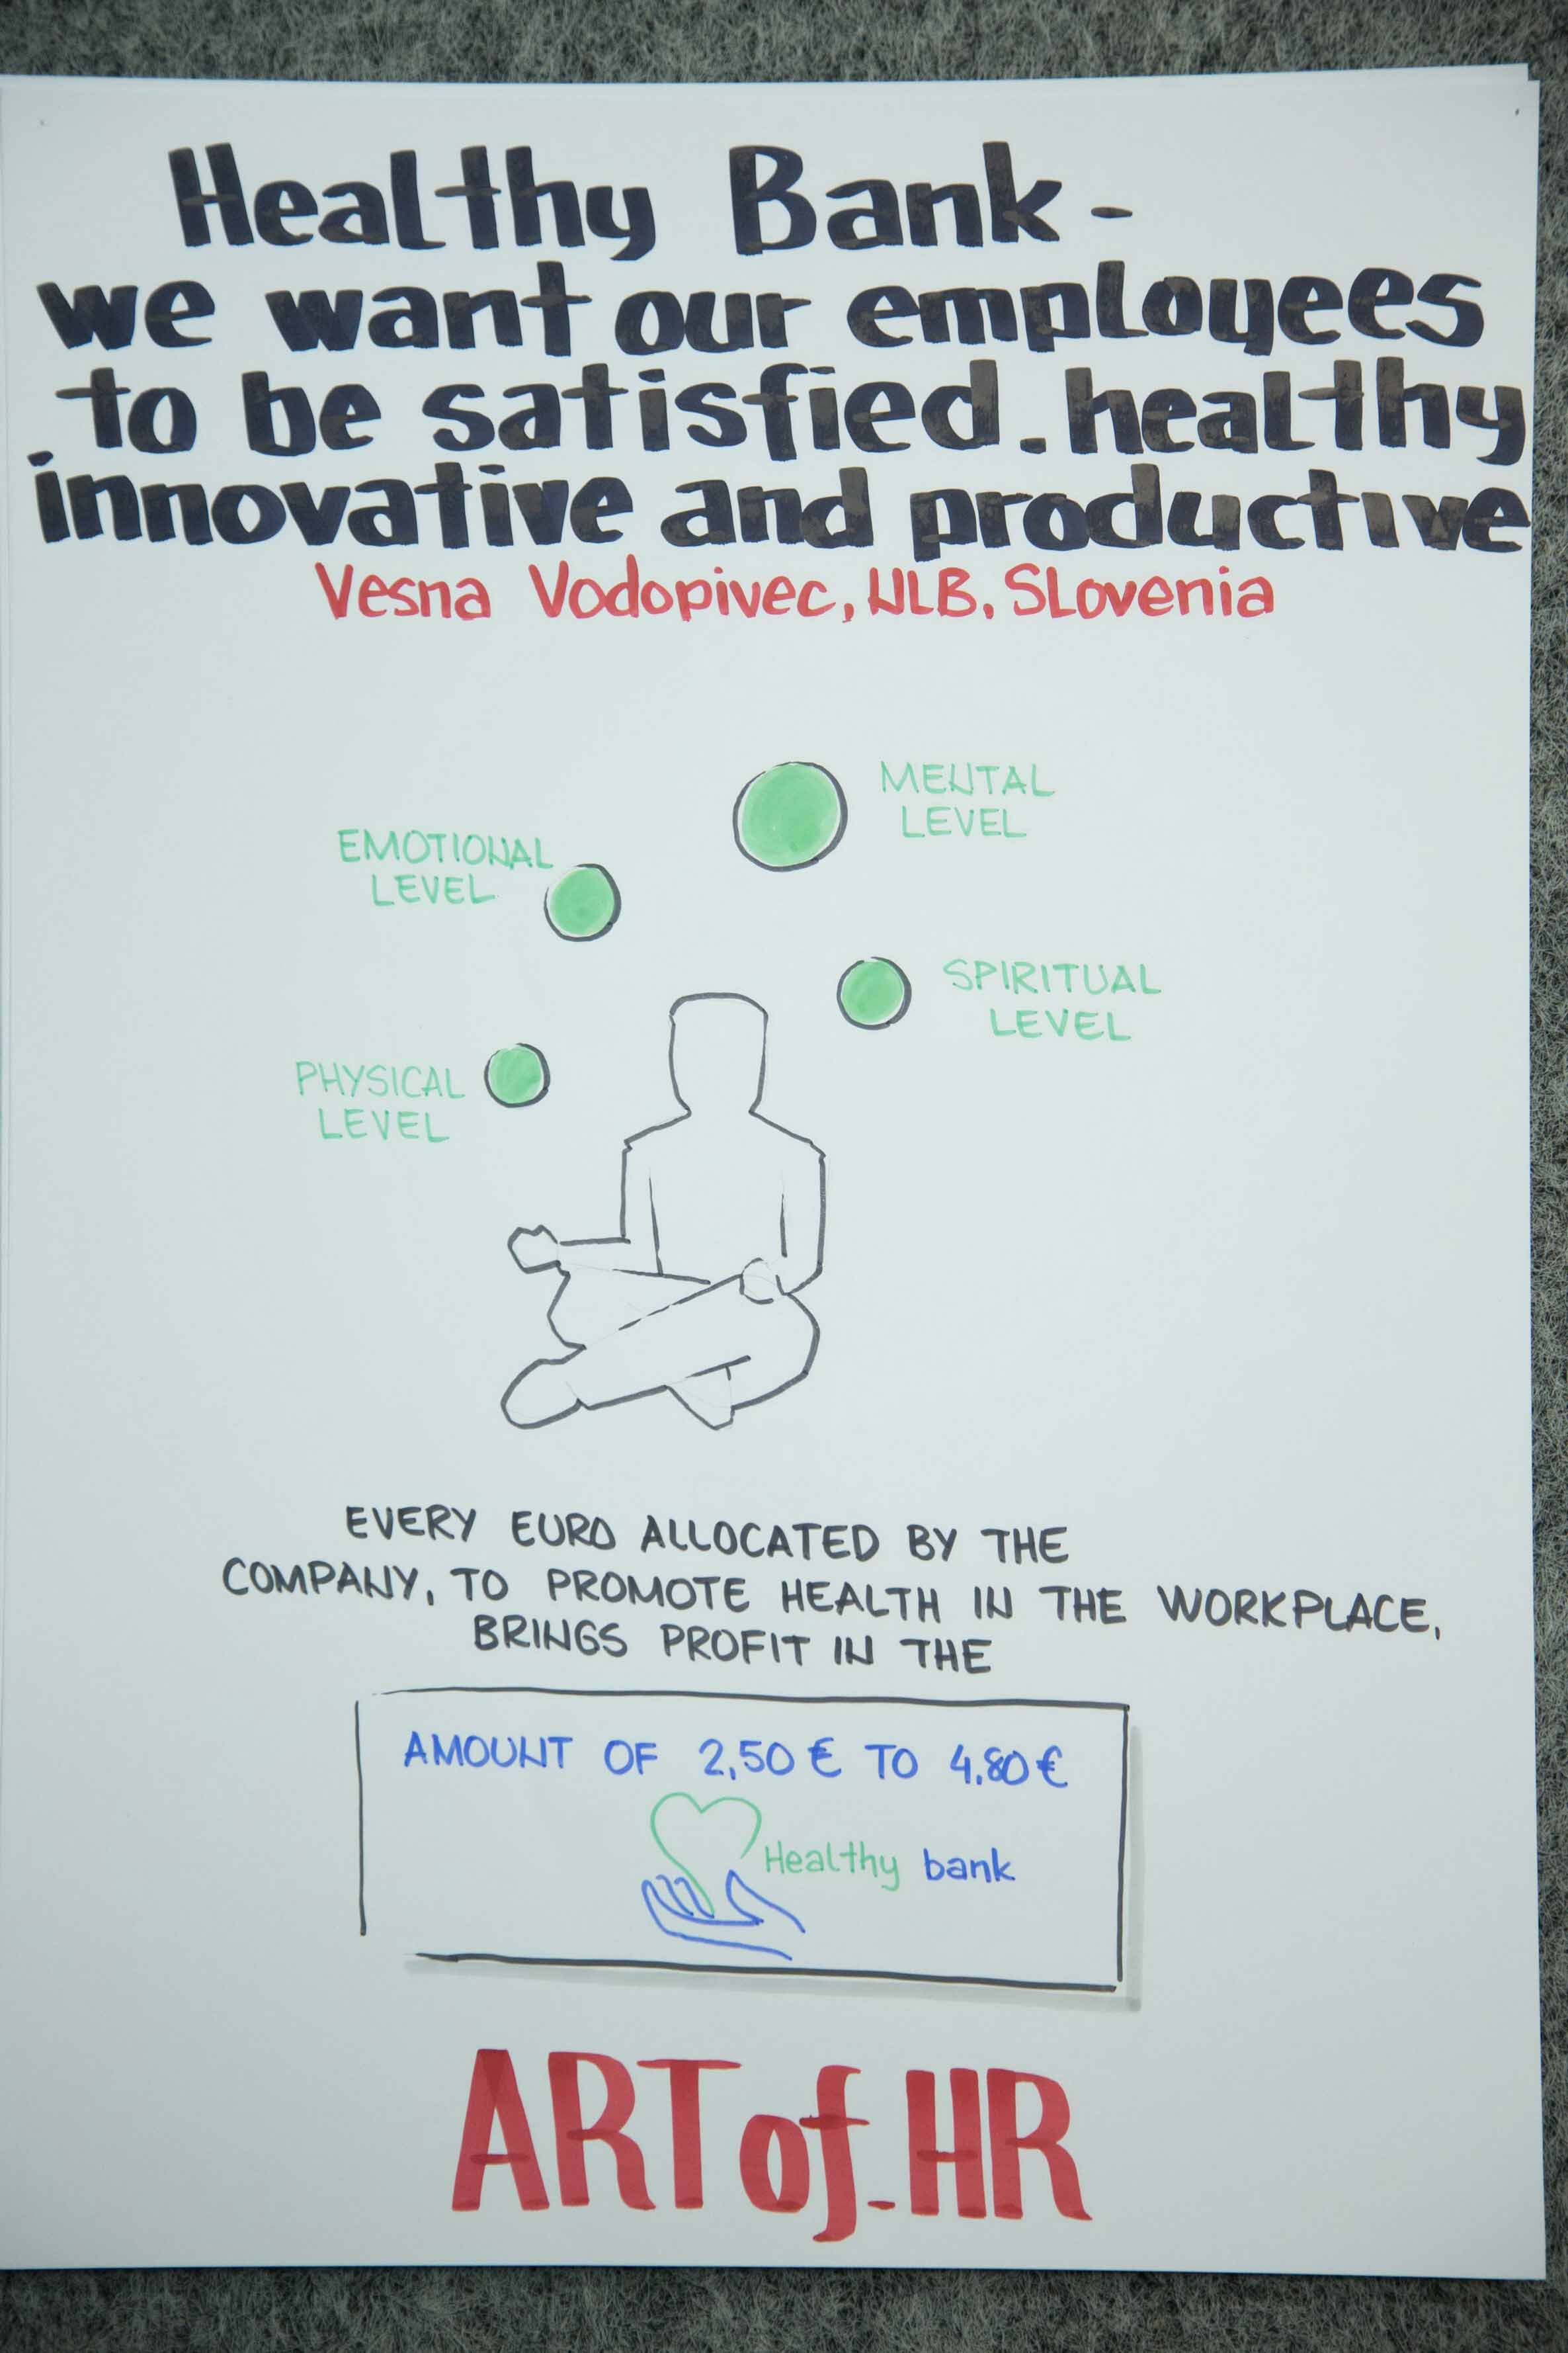 Healthy Bank -
we want our employees
to be satisfied. healthy
innovative and productive
Vesna Vodopivec, NLB, Slovenia
MENTAL
LEVEL
EMOTIONAL
LEVEL
SPIRITUAL
LEVEL
PHYSICAL
LEVEL
EVERY EURO ALLOCATED BY THE
COMPANY, TO PROMOTE HEALTH IN THE WORKPLACE,
BRINGS PROFIT IN THE
AMOUNT OF 2,50 € TO 4,80 €
Healthy bank
ART of HR